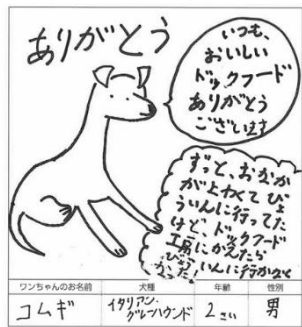 ありがとう
いつも、
おいしい
ドックフード
ありがとう
ございます
ずっと、おなか
が上わくてびょ
ういんに行ってた
けど、ドックフード
工房にかえたら
びょういんに行かなく
なった
ワンちゃんのお名前
犬種
年齢
性別
コムギ
イタリアン・
グレーハウンド
2さい
男